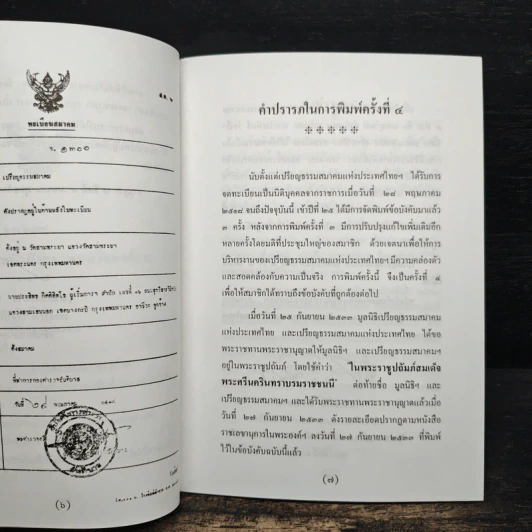 ส.ค. ๖
ทะเบียนสมาคม
เปรียญธรรมสมาคม
ตั้งสมาคม
วันที่ ๒๘
(๖)
คำปรารภในการพิมพ์ครั้งที่ ๔
นับตั้งแต่เปรียญธรรมสมาคมแห่งประเทศไทยฯ ได้รับการ
จดทะเบียนเป็นนิติบุคคลจากราชการเมื่อวันที่ ๒๘ พฤษภาคม
๒๕๑๘ จนถึงปัจจุบันนี้ เข้าปีที่ ๒๕ ได้มีการจัดพิมพ์ข้อบังคับมาแล้ว
๓ ครั้ง หลังจากการพิมพ์ครั้งที่ ๓ มีการปรับปรุงแก้ไขเพิ่มเติมอีก
หลายครั้งโดยมติที่ประชุมใหญ่ของสมาชิก ด้วยเจตนาเพื่อให้การ
บริหารงานของเปรียญธรรมสมาคมแห่งประเทศไทยฯ มีความคล่องตัว
และสอดคล้องกับความเป็นจริง การพิมพ์ครั้งนี้ จึงเป็นครั้งที่ ๔
เพื่อให้สมาชิกได้ทราบถึงข้อบังคับที่ถูกต้องต่อไป
เมื่อวันที่ ๒๕ กันยายน ๒๕๓๓ มูลนิธิเปรียญธรรมสมาคม
แห่งประเทศไทย และเปรียญธรรมสมาคมแห่งประเทศไทย ได้ขอ
พระราชทานพระราชานุญาตให้มูลนิธิฯ และเปรียญธรรมสมาคมฯ
อยู่ในพระราชูปถัมภ์ โดยใช้คำว่า "ในพระราชูปถัมภ์สมเด็จ
พระศรีนครินทราบรมราชชนนี" ต่อท้ายชื่อ มูลนิธิฯ และ
เปรียญธรรมสมาคมฯ และได้รับพระราชทานพระราชานุญาตแล้วเมื่อ
วันที่ ๒๗ กันยายน ๒๕๓๓ ดังรายละเอียดปรากฏตามหนังสือ
ราชเลขานุการในพระองค์ฯ ลงวันที่ ๒๗ กันยายน ๒๕๓๓ ที่พิมพ์
ไว้ในข้อบังคับฉบับนี้แล้ว
(๗)